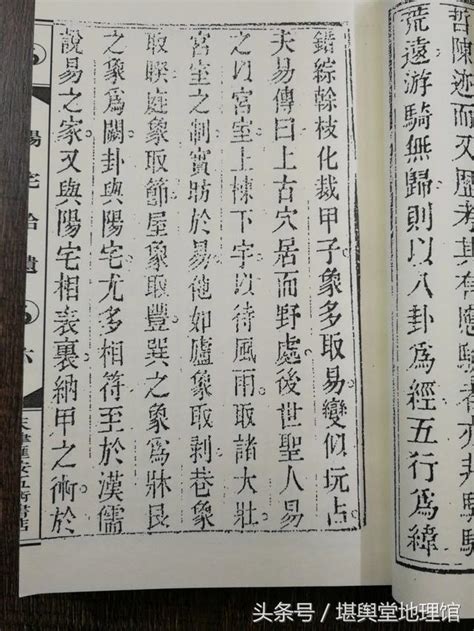 哲陳迹而又歷考其有應
荒遠游騎無歸則以八卦為經五行為緯
錯綜榦枝化裁甲子象多取易變似玩占
夫易傳曰上古穴居而野處後世聖人易
之以宮室上棟下宇以待風雨取諸大壯
宮室之制實昉於易他如廬象取剥巷象
取睽庭象取節屋象取豐巽之象為牀艮
之象為闕卦與陽宅尤多相符至於漢儒
說易之家又與陽宅相表裏納甲之術於
陽宅拾遺
六
頭条号／堪舆堂地理馆